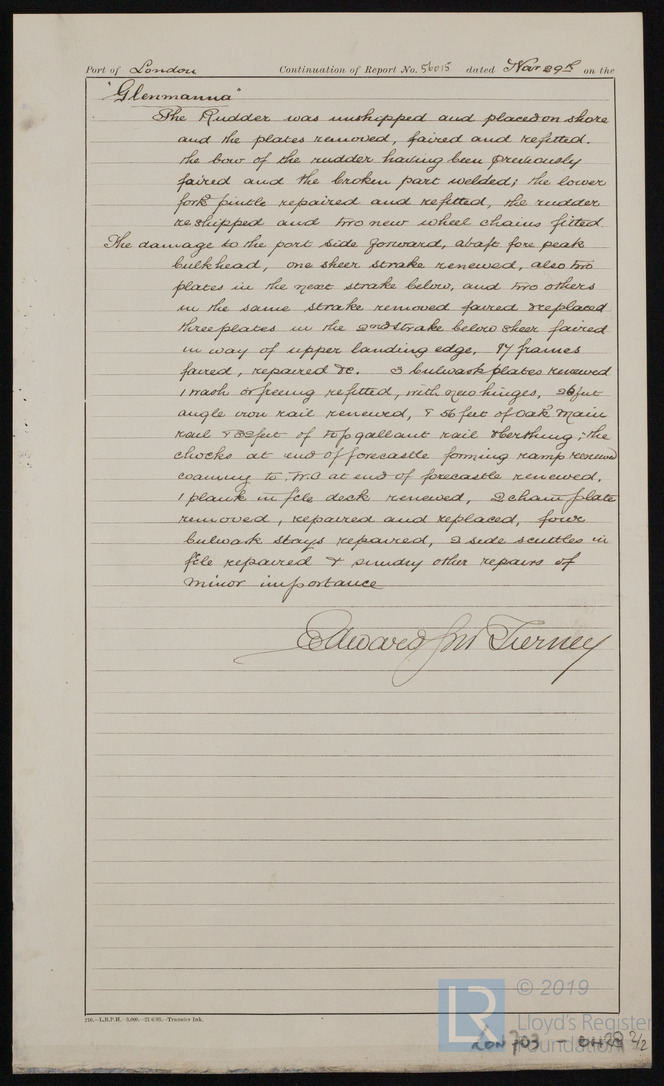 Port of London Continuation of Report No. 56015 dated Nov 29th on the
"Glenmanna"
The Rudder was unshipped and placed on shore
and the plates removed, faired and refitted.
the bow of the rudder having been previously
faired and the broken part welded; the lower
fork pintle repaired and refitted, the rudder
reshipped and two new wheel chains fitted.
The damage to the port side forward, abaft fore peak
bulkhead, one sheer strake renewed, also two
plates in the next strake below, and two others
in the same strake removed faired & replaced
three plates in the 2nd strake below sheer faired
in way of upper landing edge, 17 frames
faired, repaired &c. 3 bulwark plates renewed
1 wash or freeing refitted, with new hinges, 26 feet
angle iron rail renewed, & 56 feet of Oak Main
rail & 32 feet of top gallant rail & berthing; the
chocks at end of forecastle forming ramp renewed
coaming to W.C at end of forecastle renewed.
1 plank in f'cle deck renewed, 2 chain plate
removed, repaired and replaced, four
bulwark stays repaired, 2 side scuttles in
f'cle repaired & sundry other repairs of
minor importance
Edward Tierney
210.—L.R.P.H. 3,000.—21/6/95.—Transfer Ink.
© 2019
LR
Lloyd's Register
Foundation
LON 703 - 0428 2/2